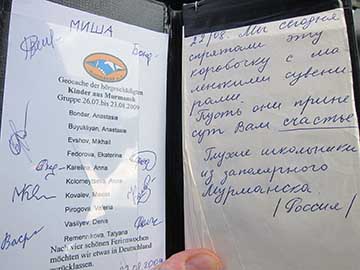 МИША
Geocache der hörgeschädigten
Kinder aus Murmansk
Gruppe 26.07. bis 23.08.2009
Bondar, Anastasia
Buyuklyan, Anastasia
Evshov, Mikhail
Fedorova, Ekaterina
Karelina, Anna
Kolomeytseva,
Kovalev, Maxim
Pirogova, Valeria
Vasilyev, Denis
Remennikova, Tatyana
Nach vier schönen Ferienwochen
möchten wir etwas in Deutschland
zurücklassen.
22/08. Мы сегодня
спрятали эту
коробочку с ма-
ленькими сувени-
рами.
Пусть они прине
сут Вам счастье
Глухие школьники
из заполярного
Мурманска.
/Россия/